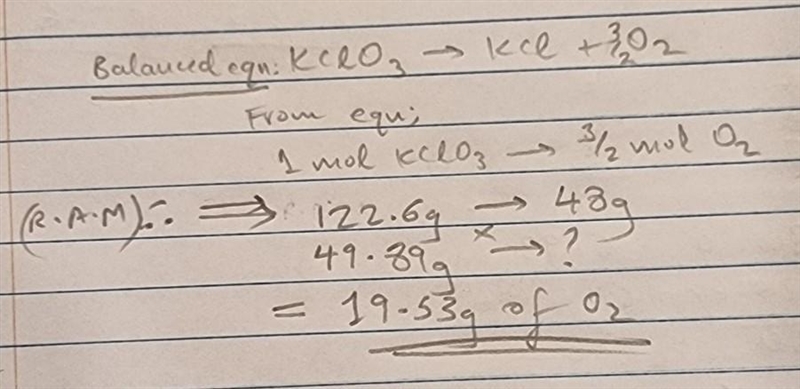 Balanced eqn: KClO3 → KCl + 3/2O2
From eqn;
1 mol KClO3 → 3/2 mol O2
(R.A.M) ∴ ⟹ 122.6g → 48g
49.89g x→ ?
= 19.53g of O2